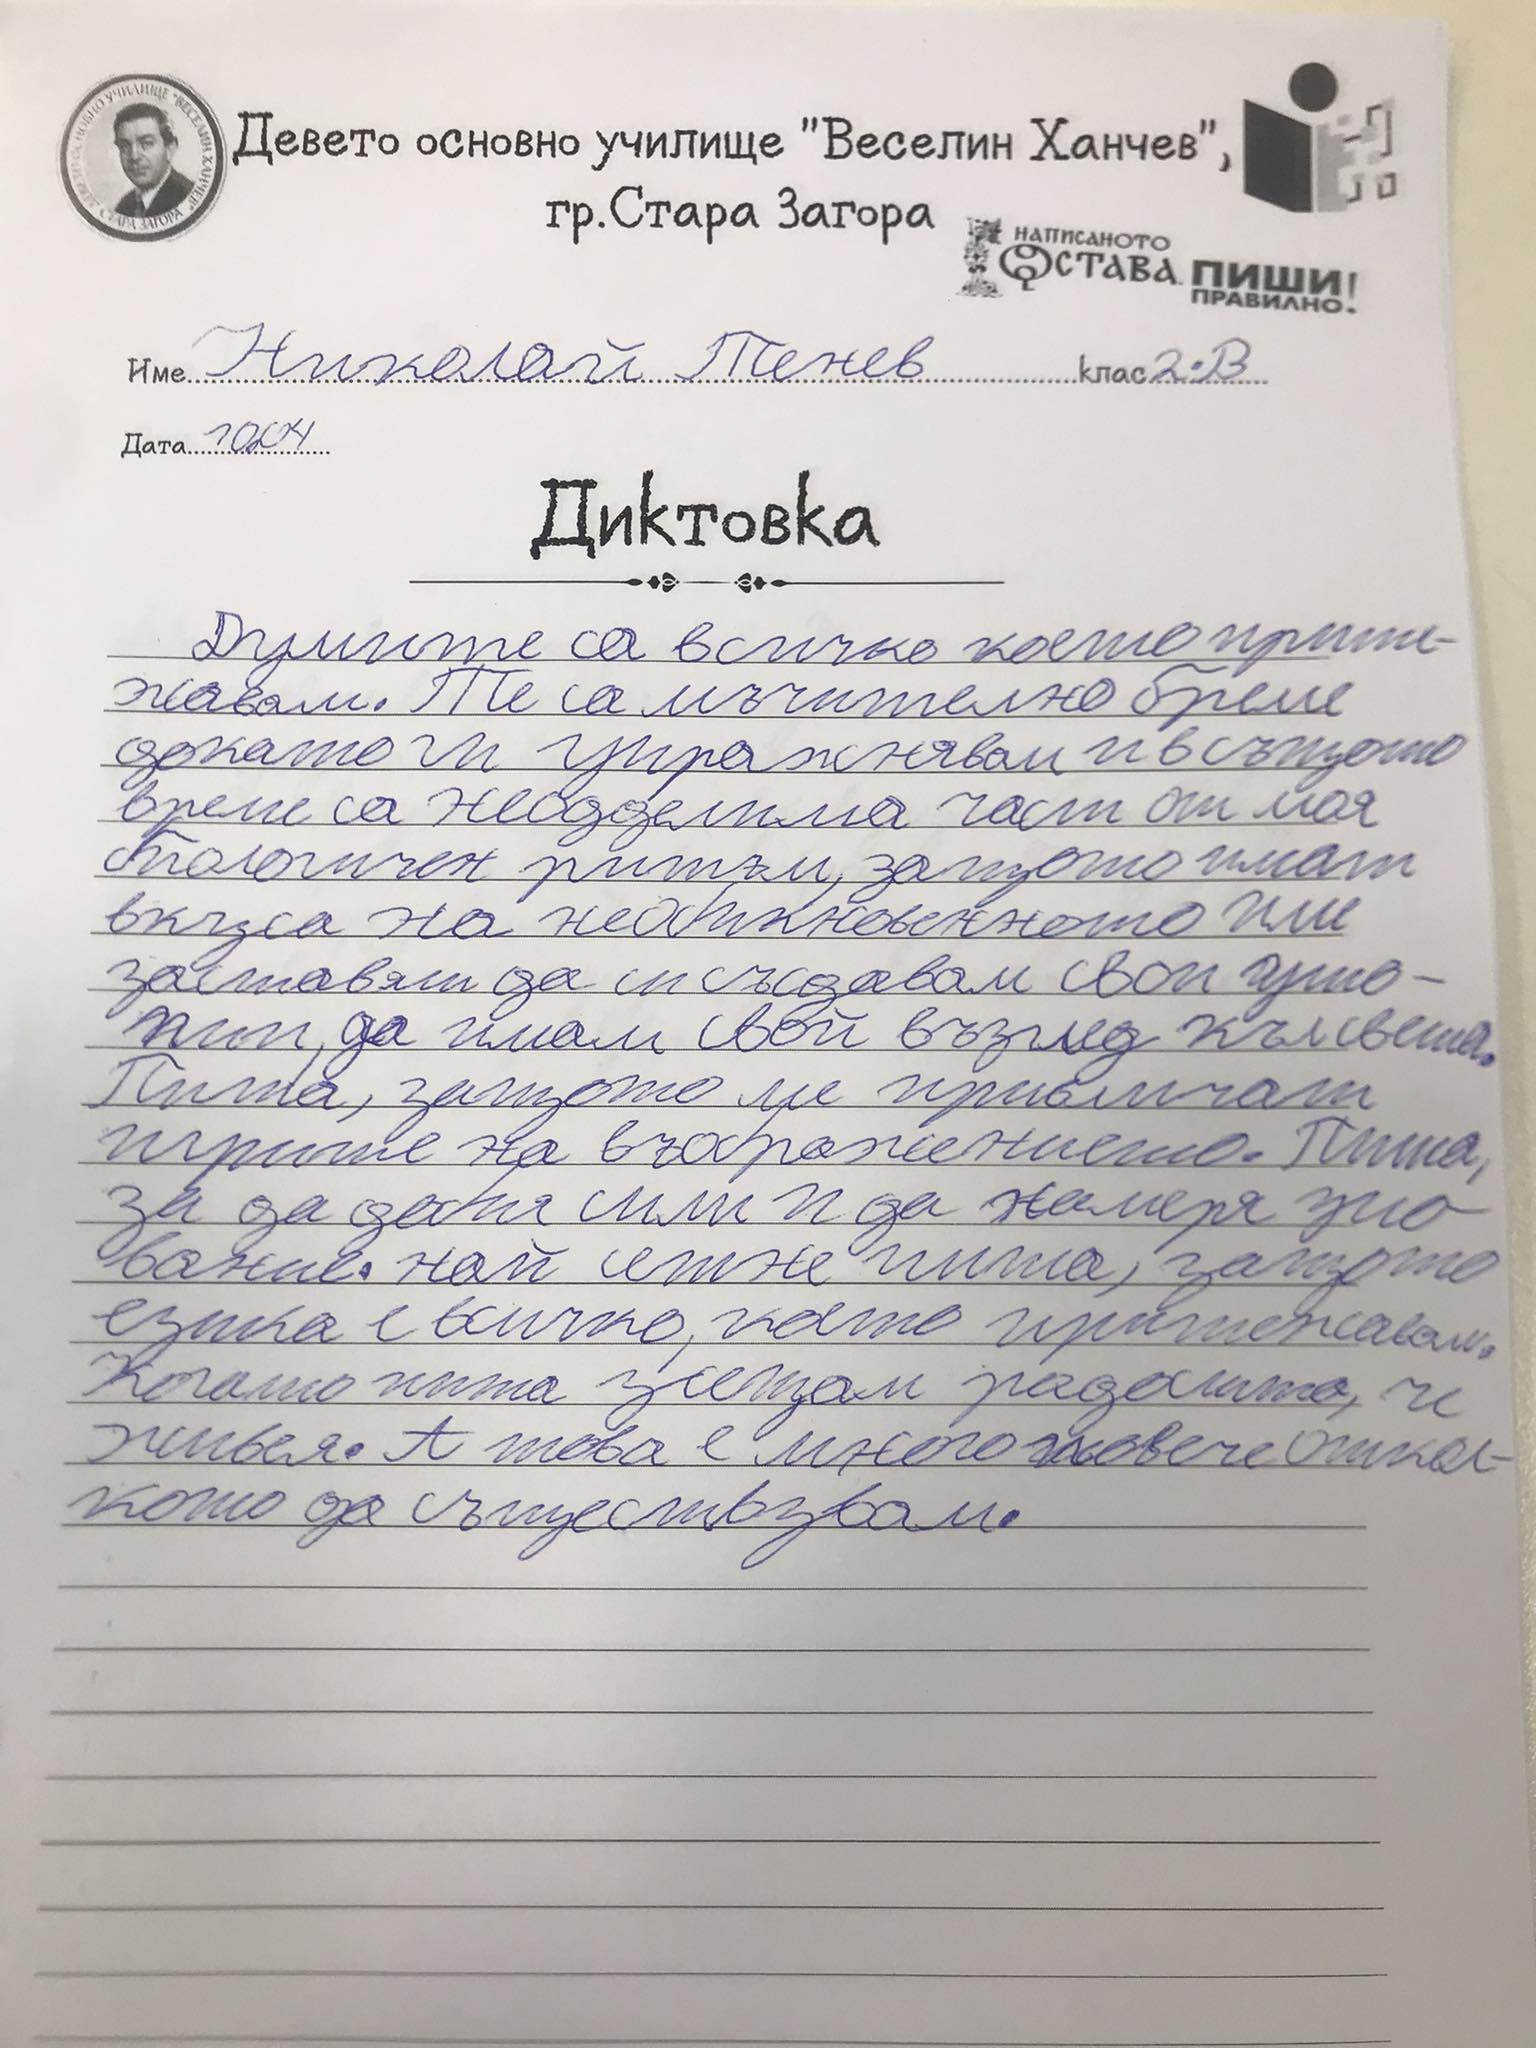 ДЕВЕТО ОСНОВНО УЧИЛИЩЕ "ВЕСЕЛИН ХАНЧЕВ" СТАРА ЗАГОРА
Девето основно училище "Веселин Ханчев",
гр.Стара Загора
НАПИСАНОТО
ОСТАВА. ПИШИ
ПРАВИЛНО!
Име Николай Тенев клас 2.В
Дата
Диктовка
Думите са всичко което прите-
жавам. Те са мъчително бреме
докато ги упражнявам и в същото
време са неодделима част от моя
биологичен ритъм, защото имат
вкуса на необикновенното и ме
заставят да си създавам свои уто-
пии, да имам свой възглед към света.
Пиша, защото ме привличат
игрите на въображението. Пиша,
за да добия сили и да намеря упо-
вание. най сетне пиша, защото
езика е всичко, което притежавам.
Когато пиша усещам радостта, че
живея. А това е много повече откол-
кото да съществувам.